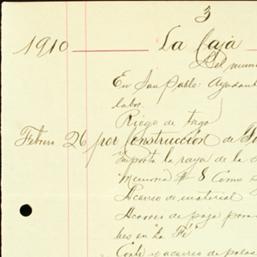 3
1910 La Caja
Del
En San Pablo: Ayudante
labor
Riego de trigo
Febro 26 por construcción de
Importe la raya de la
Memoria # 8 Como
Acarreo de material
Acarreo de paja para
en La Fé
Corte y acarreo de palos